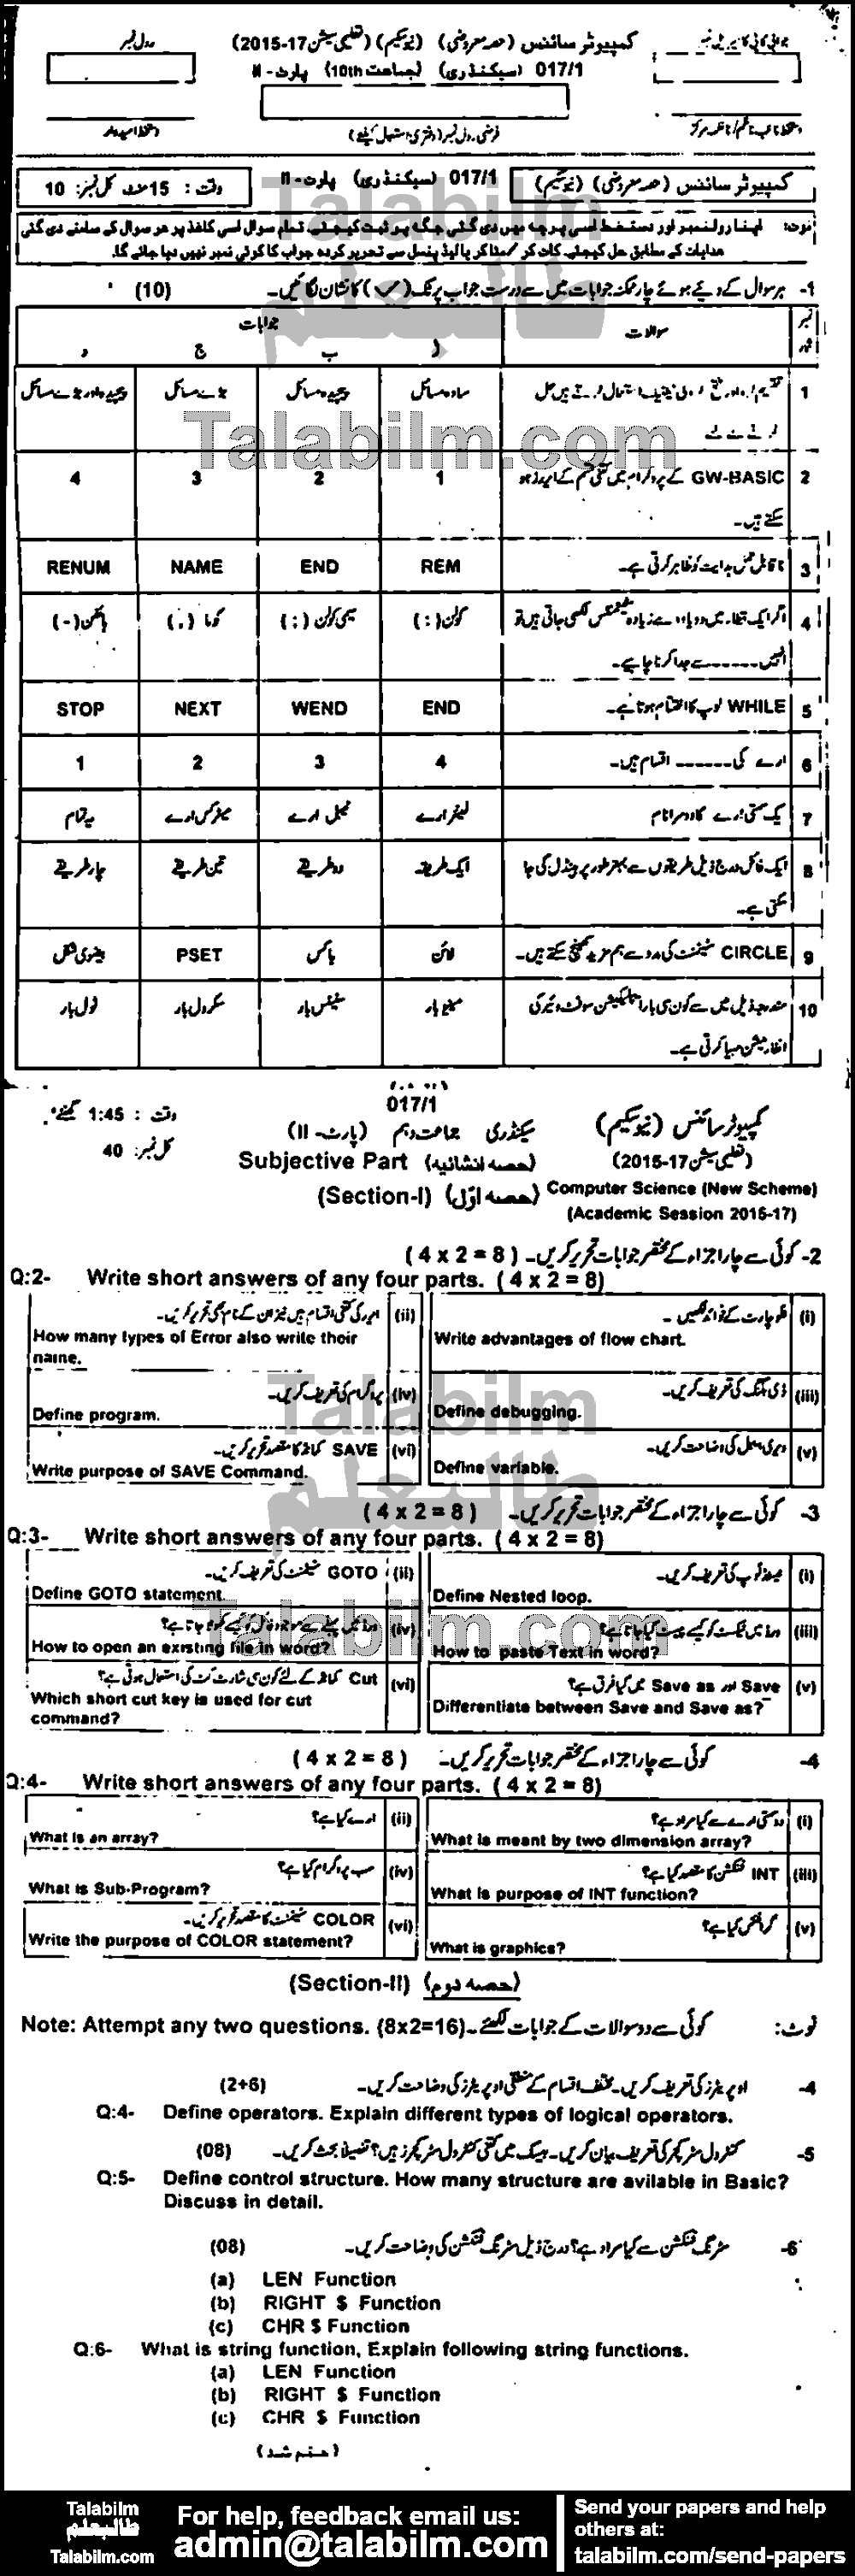 کمپیوٹر سائنس (حصہ معروضی) (نیو سکیم) (تعلیمی سیشن 17-2015)
رول نمبر
017/1 (سیکنڈری) (جماعت 10th) پارٹ - II
فرضی رول نمبر (دفتری استعمال کیلئے)
دستخط امیدوار
کمپیوٹر سائنس (حصہ معروضی) (نیو سکیم)
017/1 (سیکنڈری) پارٹ - II
وقت : 15 منٹ کل نمبر: 10
نوٹ: اپنا رولنمبر اور دستخط اسی پرچہ میں دی گئی جگہ پر ثبت کیجئے۔ تمام سوال اسی کاغذ پر ہر سوال کے سامنے دی گئی
ہدایات کے مطابق حل کیجئے۔ کاٹ کر / مٹا کر یا لیڈ پنسل سے تحریر کردہ جواب کا کوئی نمبر نہیں دیا جائے گا۔
1- ہر سوال کے دیئے ہوئے چار ممکنہ جوابات میں سے درست جواب پر ٹک (✓) کا نشان لگائیں۔ (10)
نمبر شمار سوالات جوابات
ا ب ج د
1 سادہ مسائل پیچیدہ مسائل بڑے مسائل پیچیدہ اور بڑے مسائل
2 GW-BASIC کے پروگرام میں کتنی قسم کے ایررز ہو سکتے ہیں۔ 1 2 3 4
3 ناقابل عمل ہدایت کو ظاہر کرتی ہے۔ REM END NAME RENUM
4 اگر ایک قطار میں دو یا دو سے زیادہ سٹیٹمنٹس لکھی جاتی ہیں تو انہیں ------ سے جدا کرنا چاہیے۔ کولن (:) سیمی کولن (;) کوما (,) ہائفن (-)
5 WHILE لوپ کا اختتام ہوتا ہے۔ END WEND NEXT STOP
6 ارے کی ------ اقسام ہیں۔ 4 3 2 1
7 یک سمتی ارے کا دوسرا نام لینئر ارے ٹیبل ارے میٹرکس ارے یہ تمام
8 ایک فائل درج ذیل طریقوں سے بہتر طور پر ہینڈل کی جا سکتی ہے۔ ایک طریقہ دو طریقے تین طریقے چار طریقے
9 CIRCLE سٹیٹمنٹ کی مدد سے ہم مزید کھینچ سکتے ہیں۔ لائن باکس PSET بیضوی شکل
10 مندرجہ ذیل میں سے کون سی بار ایپلیکیشن سوفٹ وئیر کی انفارمیشن مہیا کرتی ہے۔ مینیو بار سٹیٹس بار سکرول بار ٹول بار
017/1
کمپیوٹر سائنس (نیو سکیم) سیکنڈری جماعت دہم (پارٹ - II) وقت : 1:45 گھنٹے
(تعلیمی سیشن 17-2015) (حصہ انشائیہ) Subjective Part کل نمبر: 40
Computer Science (New Scheme) (حصہ اوّل) (Section-I)
(Academic Session 2015-17)
2- کوئی سے چار اجزاء کے مختصر جوابات تحریر کریں۔ (4 x 2 = 8)
Q:2- Write short answers of any four parts. (4 x 2 = 8)
(i) فلو چارٹ کے فوائد لکھیں۔
Write advantages of flow chart.
(ii) ایرر کی کتنی اقسام ہیں نیز ان کے نام بھی تحریر کریں۔
How many types of Error also write their
name.
(iii) ڈی بگنگ کی تعریف کریں۔
Define debugging.
(iv) پروگرام کی تعریف کریں۔
Define program.
(v) ویری ایبل کی وضاحت کریں۔
Define variable.
(vi) SAVE کمانڈ کا مقصد تحریر کریں۔
Write purpose of SAVE Command.
3- کوئی سے چار اجزاء کے مختصر جوابات تحریر کریں۔ (4 x 2 = 8)
Q:3- Write short answers of any four parts. (4 x 2 = 8)
(i) نیسٹڈ لوپ کی تعریف کریں۔
Define Nested loop.
(ii) GOTO سٹیٹمنٹ کی تعریف کریں۔
Define GOTO statement.
(iii) ورڈ میں ٹیکسٹ کو کیسے پیسٹ کیا جاتا ہے؟
How to paste Text in word?
(iv) ورڈ میں پہلے سے موجود فائل کو کیسے کھولا جاتا ہے؟
How to open an existing file in word?
(v) Save اور Save as میں کیا فرق ہے؟
Differentiate between Save and Save as?
(vi) Cut کمانڈ کے لئے کون سی شارٹ کٹ کی استعمال ہوتی ہے؟
Which short cut key is used for cut
command?
4- کوئی سے چار اجزاء کے مختصر جوابات تحریر کریں۔ (4 x 2 = 8)
Q:4- Write short answers of any four parts. (4 x 2 = 8)
(i) دو سمتی ارے سے کیا مراد ہے؟
What is meant by two dimension array?
(ii) ارے کیا ہے؟
What is an array?
(iii) INT فنکشن کا مقصد کیا ہے؟
What is purpose of INT function?
(iv) سب پروگرام کیا ہے؟
What is Sub-Program?
(v) گرافکس کیا ہے؟
What is graphics?
(vi) COLOR سٹیٹمنٹ کا مقصد تحریر کریں۔
Write the purpose of COLOR statement?
(حصہ دوم) (Section-II)
نوٹ: کوئی سے دو سوالات کے جوابات لکھئے۔
Note: Attempt any two questions. (8x2=16)
4- اوپریٹرز کی تعریف کریں۔ مختلف اقسام کے منطقی اوپریٹرز کی وضاحت کریں۔ (2+6)
Q:4- Define operators. Explain different types of logical operators.
5- کنٹرول سٹرکچر کی تعریف بیان کریں۔ بیسک میں کتنی کنٹرول سٹرکچرز ہیں؟ تفصیلاً بحث کریں۔ (08)
Q:5- Define control structure. How many structure are avilable in Basic?
Discuss in detail.
6- سٹرنگ فنکشن سے کیا مراد ہے؟ درج ذیل سٹرنگ فنکشن کی وضاحت کریں۔ (08)
(a) LEN Function
(b) RIGHT $ Function
(c) CHR $ Function
Q:6- What is string function, Explain following string functions.
(a) LEN Function
(b) RIGHT $ Function
(c) CHR $ Function
(ختم شد)
Talabilm
طالبعلم
Talabilm.com
Talabilm
طالبعلم
Talabilm.com
Talabilm
طالبعلم
Talabilm.com
For help, feedback email us:
admin@talabilm.com
Send your papers and help
others at:
talabilm.com/send-papers